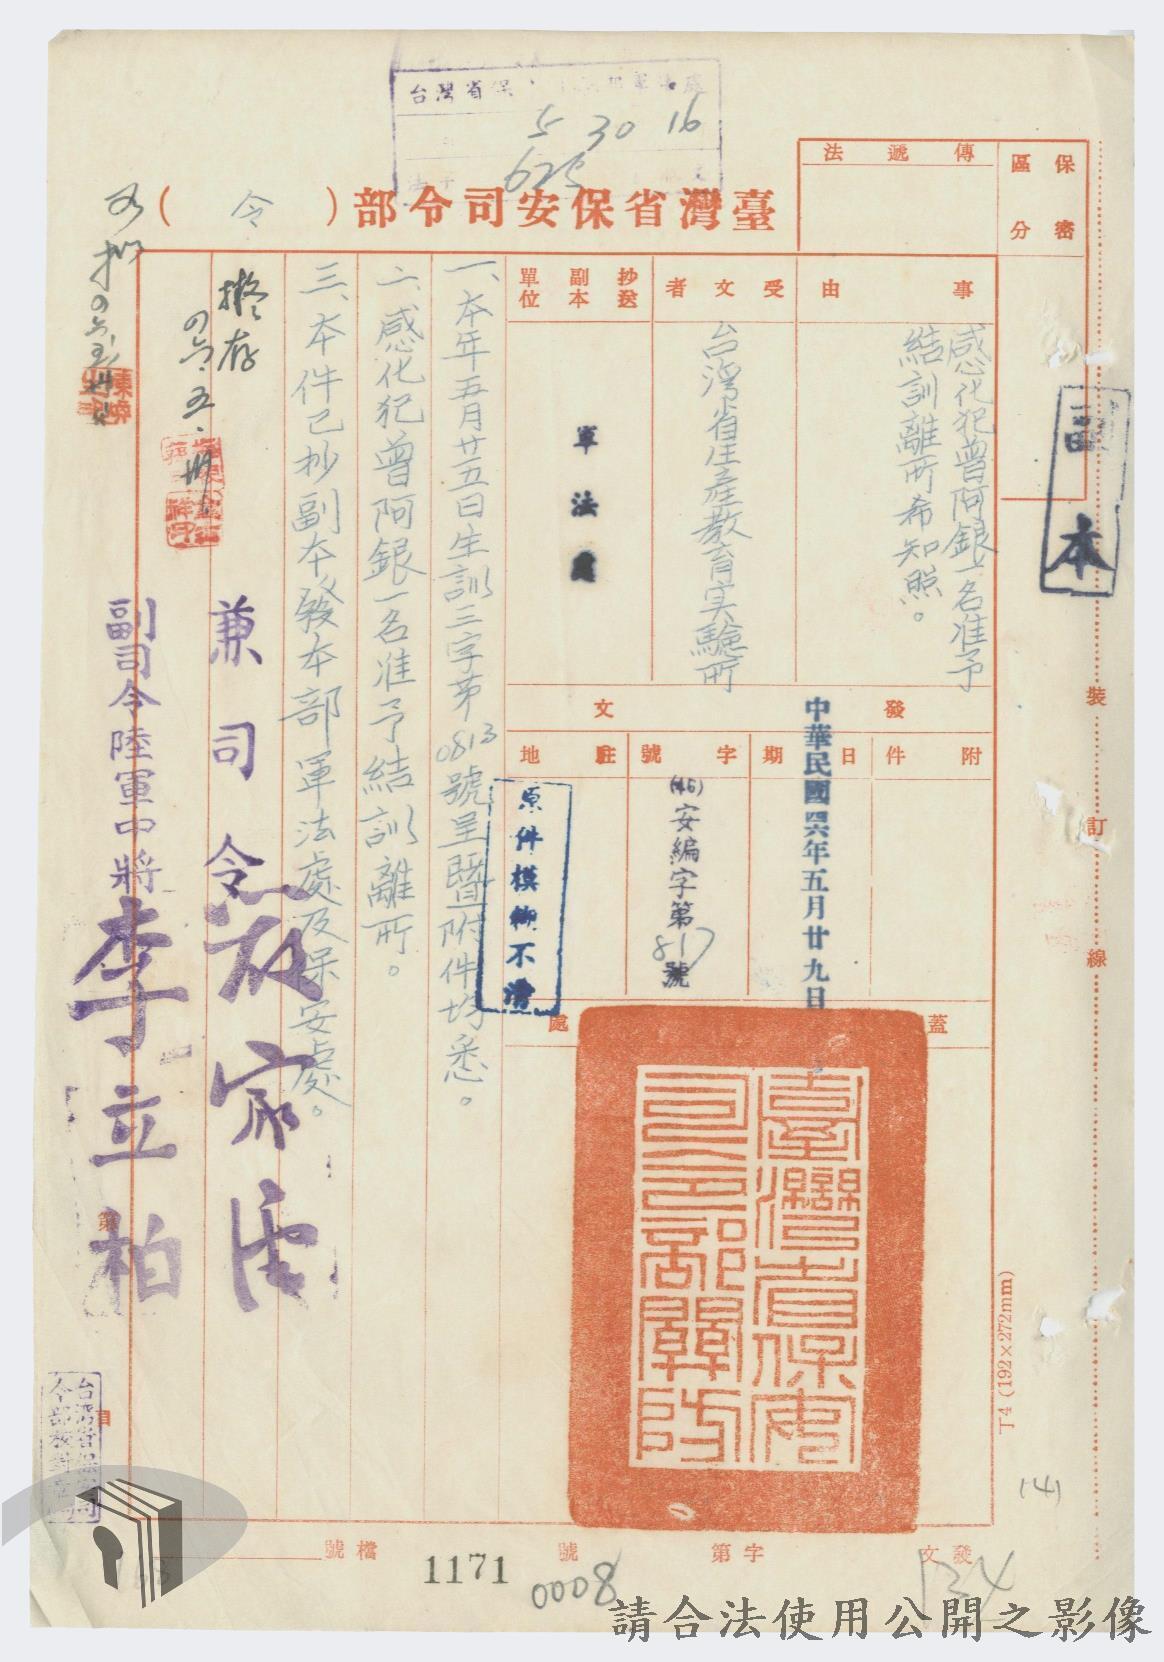 台灣省保
5 30 16
625
臺灣省保安司令部（令）
保密
區分
傳遞法
副本
事由
感化犯曾阿銀一名准予
結訓離所希知照。
受文者
台灣省生產教育實驗所
抄送
副本
單位
軍法處
發文
附件
日期
中華民國四六年五月廿九日
字號
(46)安編字第817號
駐地
蓋
處
臺灣省保安司令部關防
原件模糊不清
一、本年五月廿五日生訓三字第0813號呈暨附件均悉。
二、感化犯曾阿銀一名准予結訓離所。
三、本件已抄副本發本部軍法處及保安處。
擬存
兼司令
副司令陸軍中將李立柏
台灣省保安司
令部校對
裝訂線
丁4（192×272mm）
(4)
檔號
1171
0008
發文
字第
號
134
第
目
請合法使用公開之影像